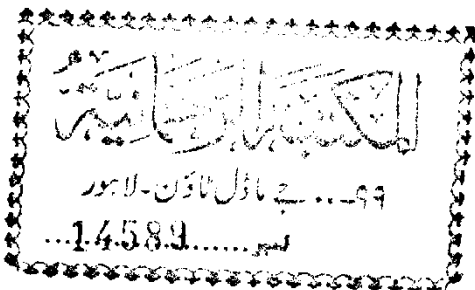 المكتبة الرحمانية
۹۹... جے ماڈل ٹاؤن - لاہور
نمبر......14589...